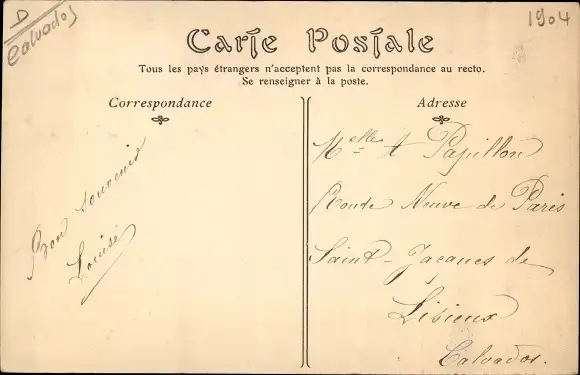 D
Calvados
1904
Carte Postale
Tous les pays étrangers n'acceptent pas la correspondance au recto.
Se renseigner à la poste.
Correspondance
Adresse
Bon souvenir
Louise
Melle A Papillon
Route Neuve de Paris
Saint-Jacques de
Lisieux
Calvados.